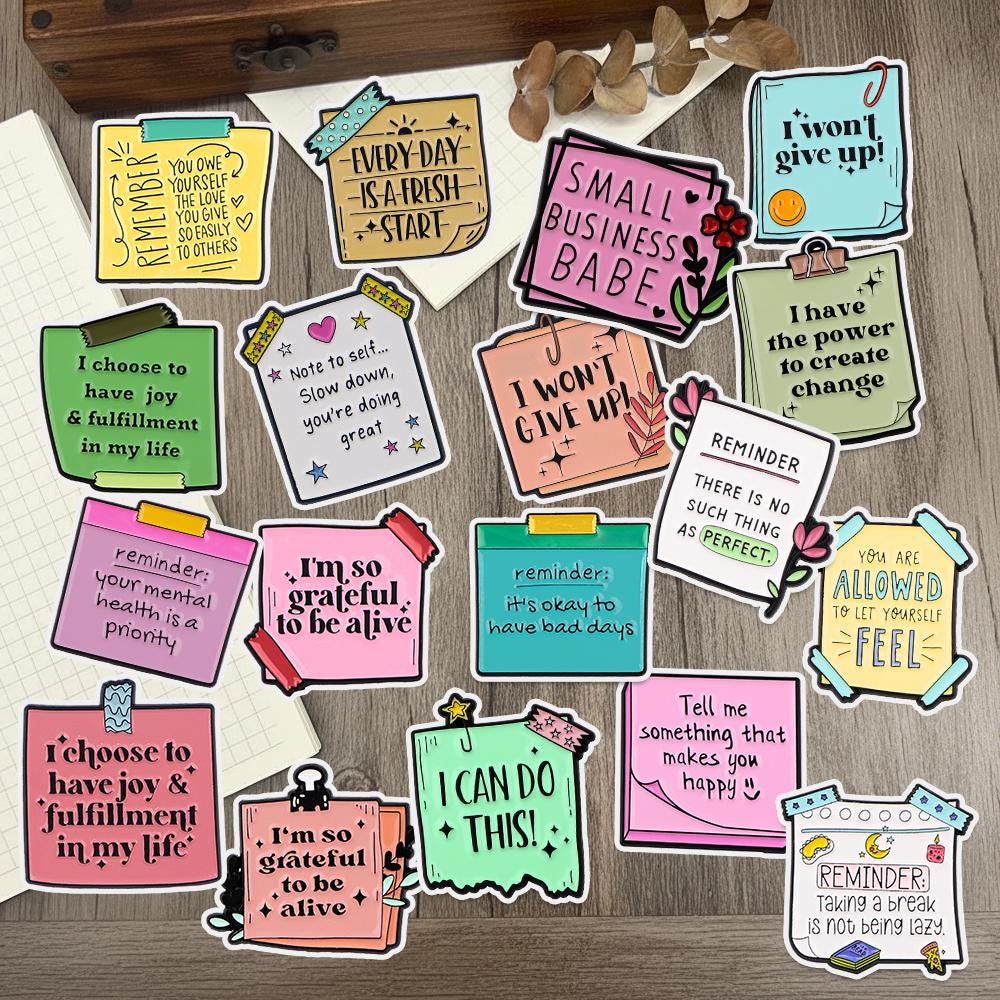 REMEMBER
YOU OWE
YOURSELF
THE LOVE
YOU GIVE
SO EASILY
TO OTHERS
EVERY DAY
IS A FRESH
START
SMALL
BUSINESS
BABE.
I won't
give up!
I choose to
have joy
& fulfillment
in my life
Note to self...
Slow down,
you're doing
great
I WON'T
GIVE UP!
I have
the power
to create
change
REMINDER
THERE IS NO
SUCH THING
AS PERFECT.
reminder:
your mental
health is a
priority
I'm so
grateful
to be alive
reminder:
it's okay to
have bad days
YOU ARE
ALLOWED
TO LET YOURSELF
FEEL
I choose to
have joy &
fulfillment
in my life
I'm so
grateful
to be
alive
I CAN DO
THIS!
Tell me
something that
makes you
happy
REMINDER:
Taking a break
is not being lazy.